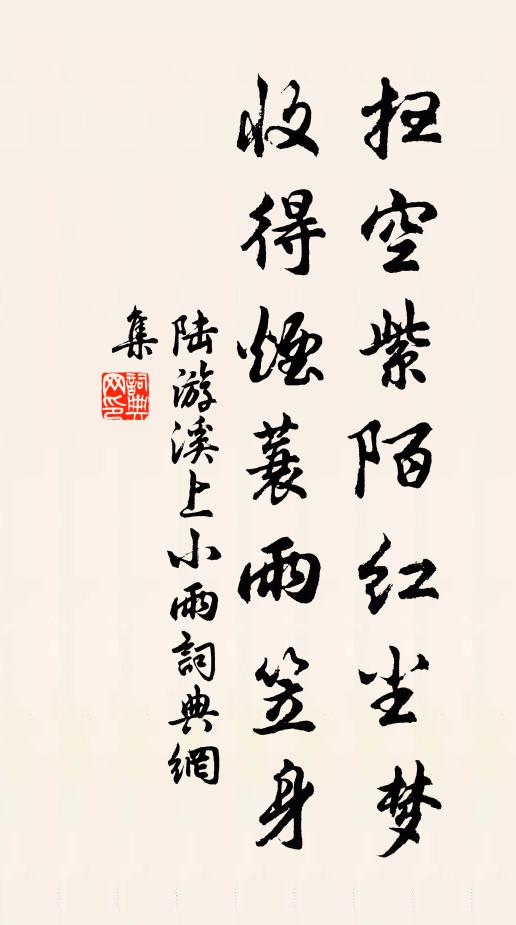 扫空紫陌红尘梦
收得煙蓑雨笠身
陆游溪上小雨詞典網
集
詞典
网印